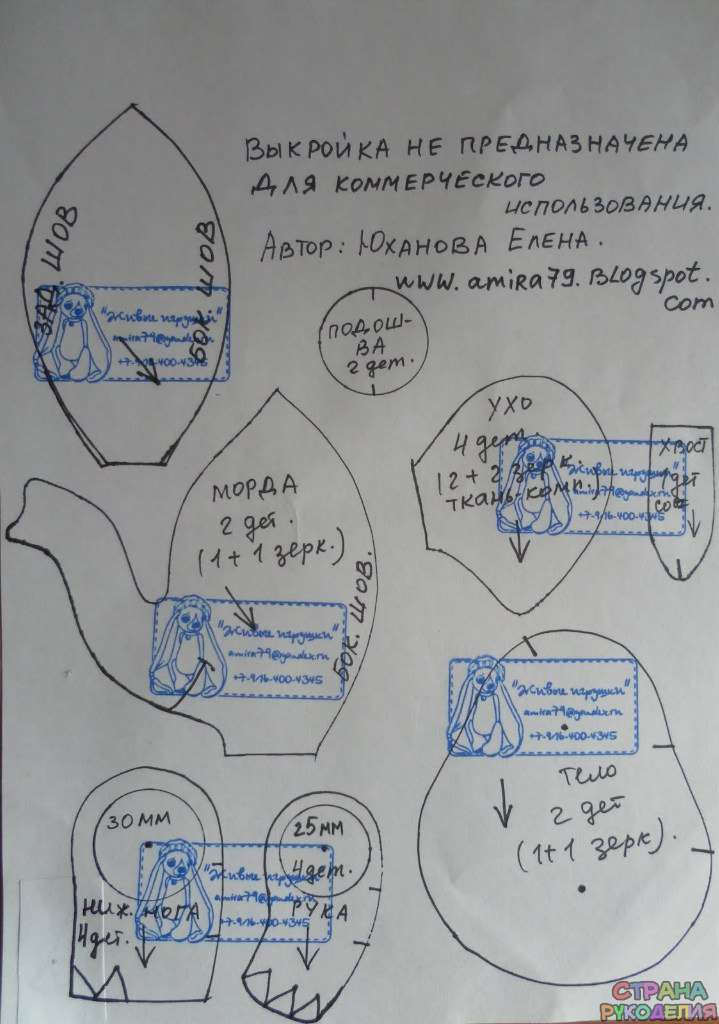 ВЫКРОЙКА НЕ ПРЕДНАЗНАЧЕНА
ДЛЯ КОММЕРЧЕСКОГО
ИСПОЛЬЗОВАНИЯ.
АВТОР: ЮХАНОВА ЕЛЕНА.
www.amira79.BLogspot.
com
ЗАД. ШОВ
БОК. ШОВ
"Живые игрушки"
amira79@yandex.ru
+7-916-400-4345
ПОДОШ-
ВА
2 дет.
УХО
4 дет.
(2+2 зерк.
ткань-комп.)
"Живые игрушки"
amira79@yandex.ru
+7-916-400-4345
ХВОСТ
1 дет
МОРДА
2 дет.
(1+1 зерк.)
БОК. ШОВ.
"Живые игрушки"
amira79@yandex.ru
+7-916-400-4345
"Живые игрушки"
amira79@yandex.ru
+7-916-400-4345
ТЕЛО
2 дет
(1+1 зерк).
30 ММ
НИЖ. НОГА
4 дет.
25 ММ
4 дет.
РУКА
"Живые игрушки"
amira79@yandex.ru
+7-916-400-4345
СТРАНА
РУКОДЕЛИЯ